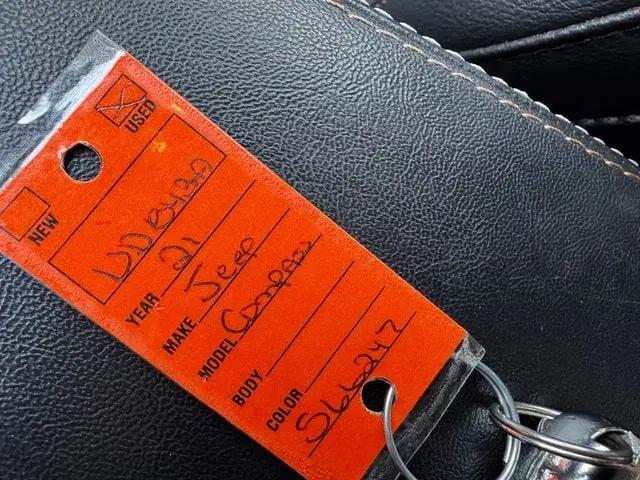 USED
NEW
UDB430
YEAR 21
MAKE Jeep
MODEL Compass
BODY
COLOR
566247